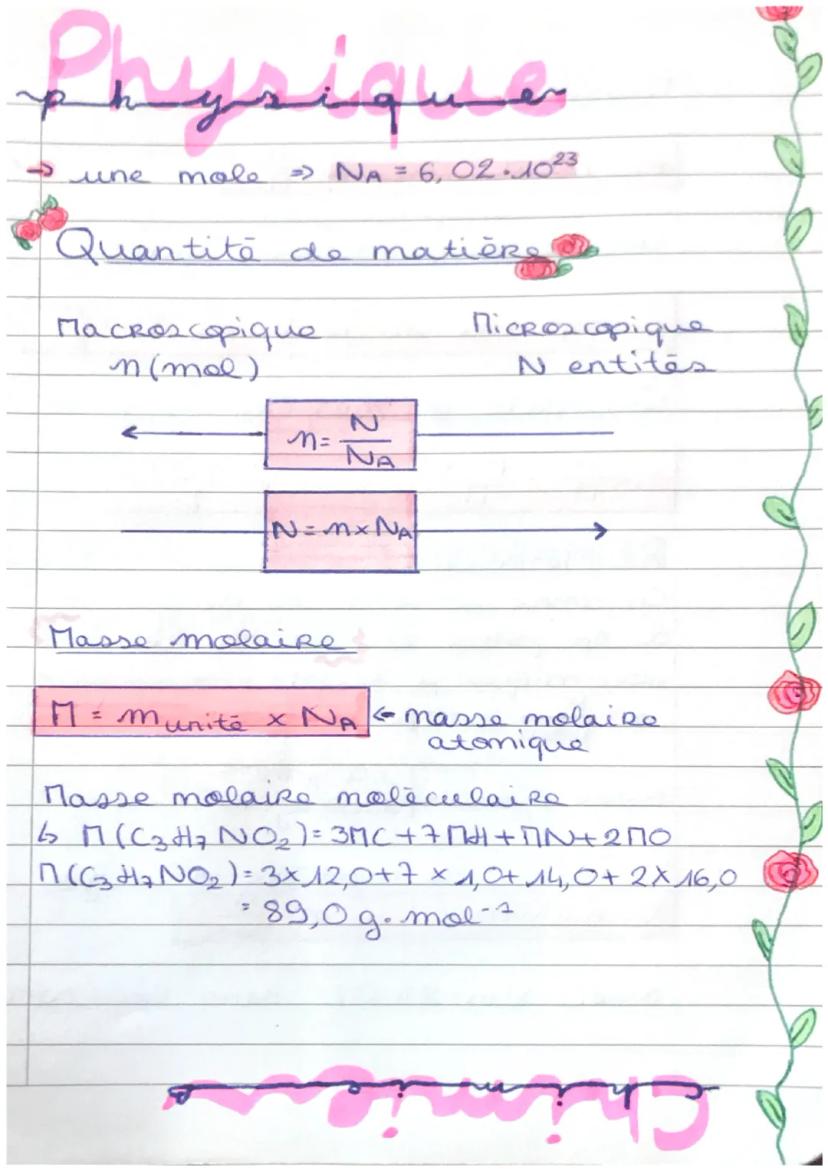 Physique
physique
→ une mole => NA = 6,02.10²³
Quantité de matière
Macroscopique Microscopique
n(mol) N entités
n = N/NA
N = n × NA
Masse molaire
M = m unité × NA ← masse molaire
atomique
Masse molaire moléculaire
↳ M(C₃H₇NO₂) = 3MC + 7MH + MN + 2MO
M(C₃H₇NO₂) = 3×12,0+7 × 1,0+14,0+ 2×16,0
= 89,0 g.mol⁻¹
Chimie
chimie